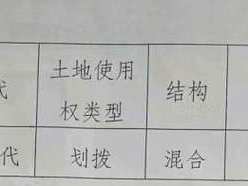 代
土地使用
权类型
结构
代
划拨
混合